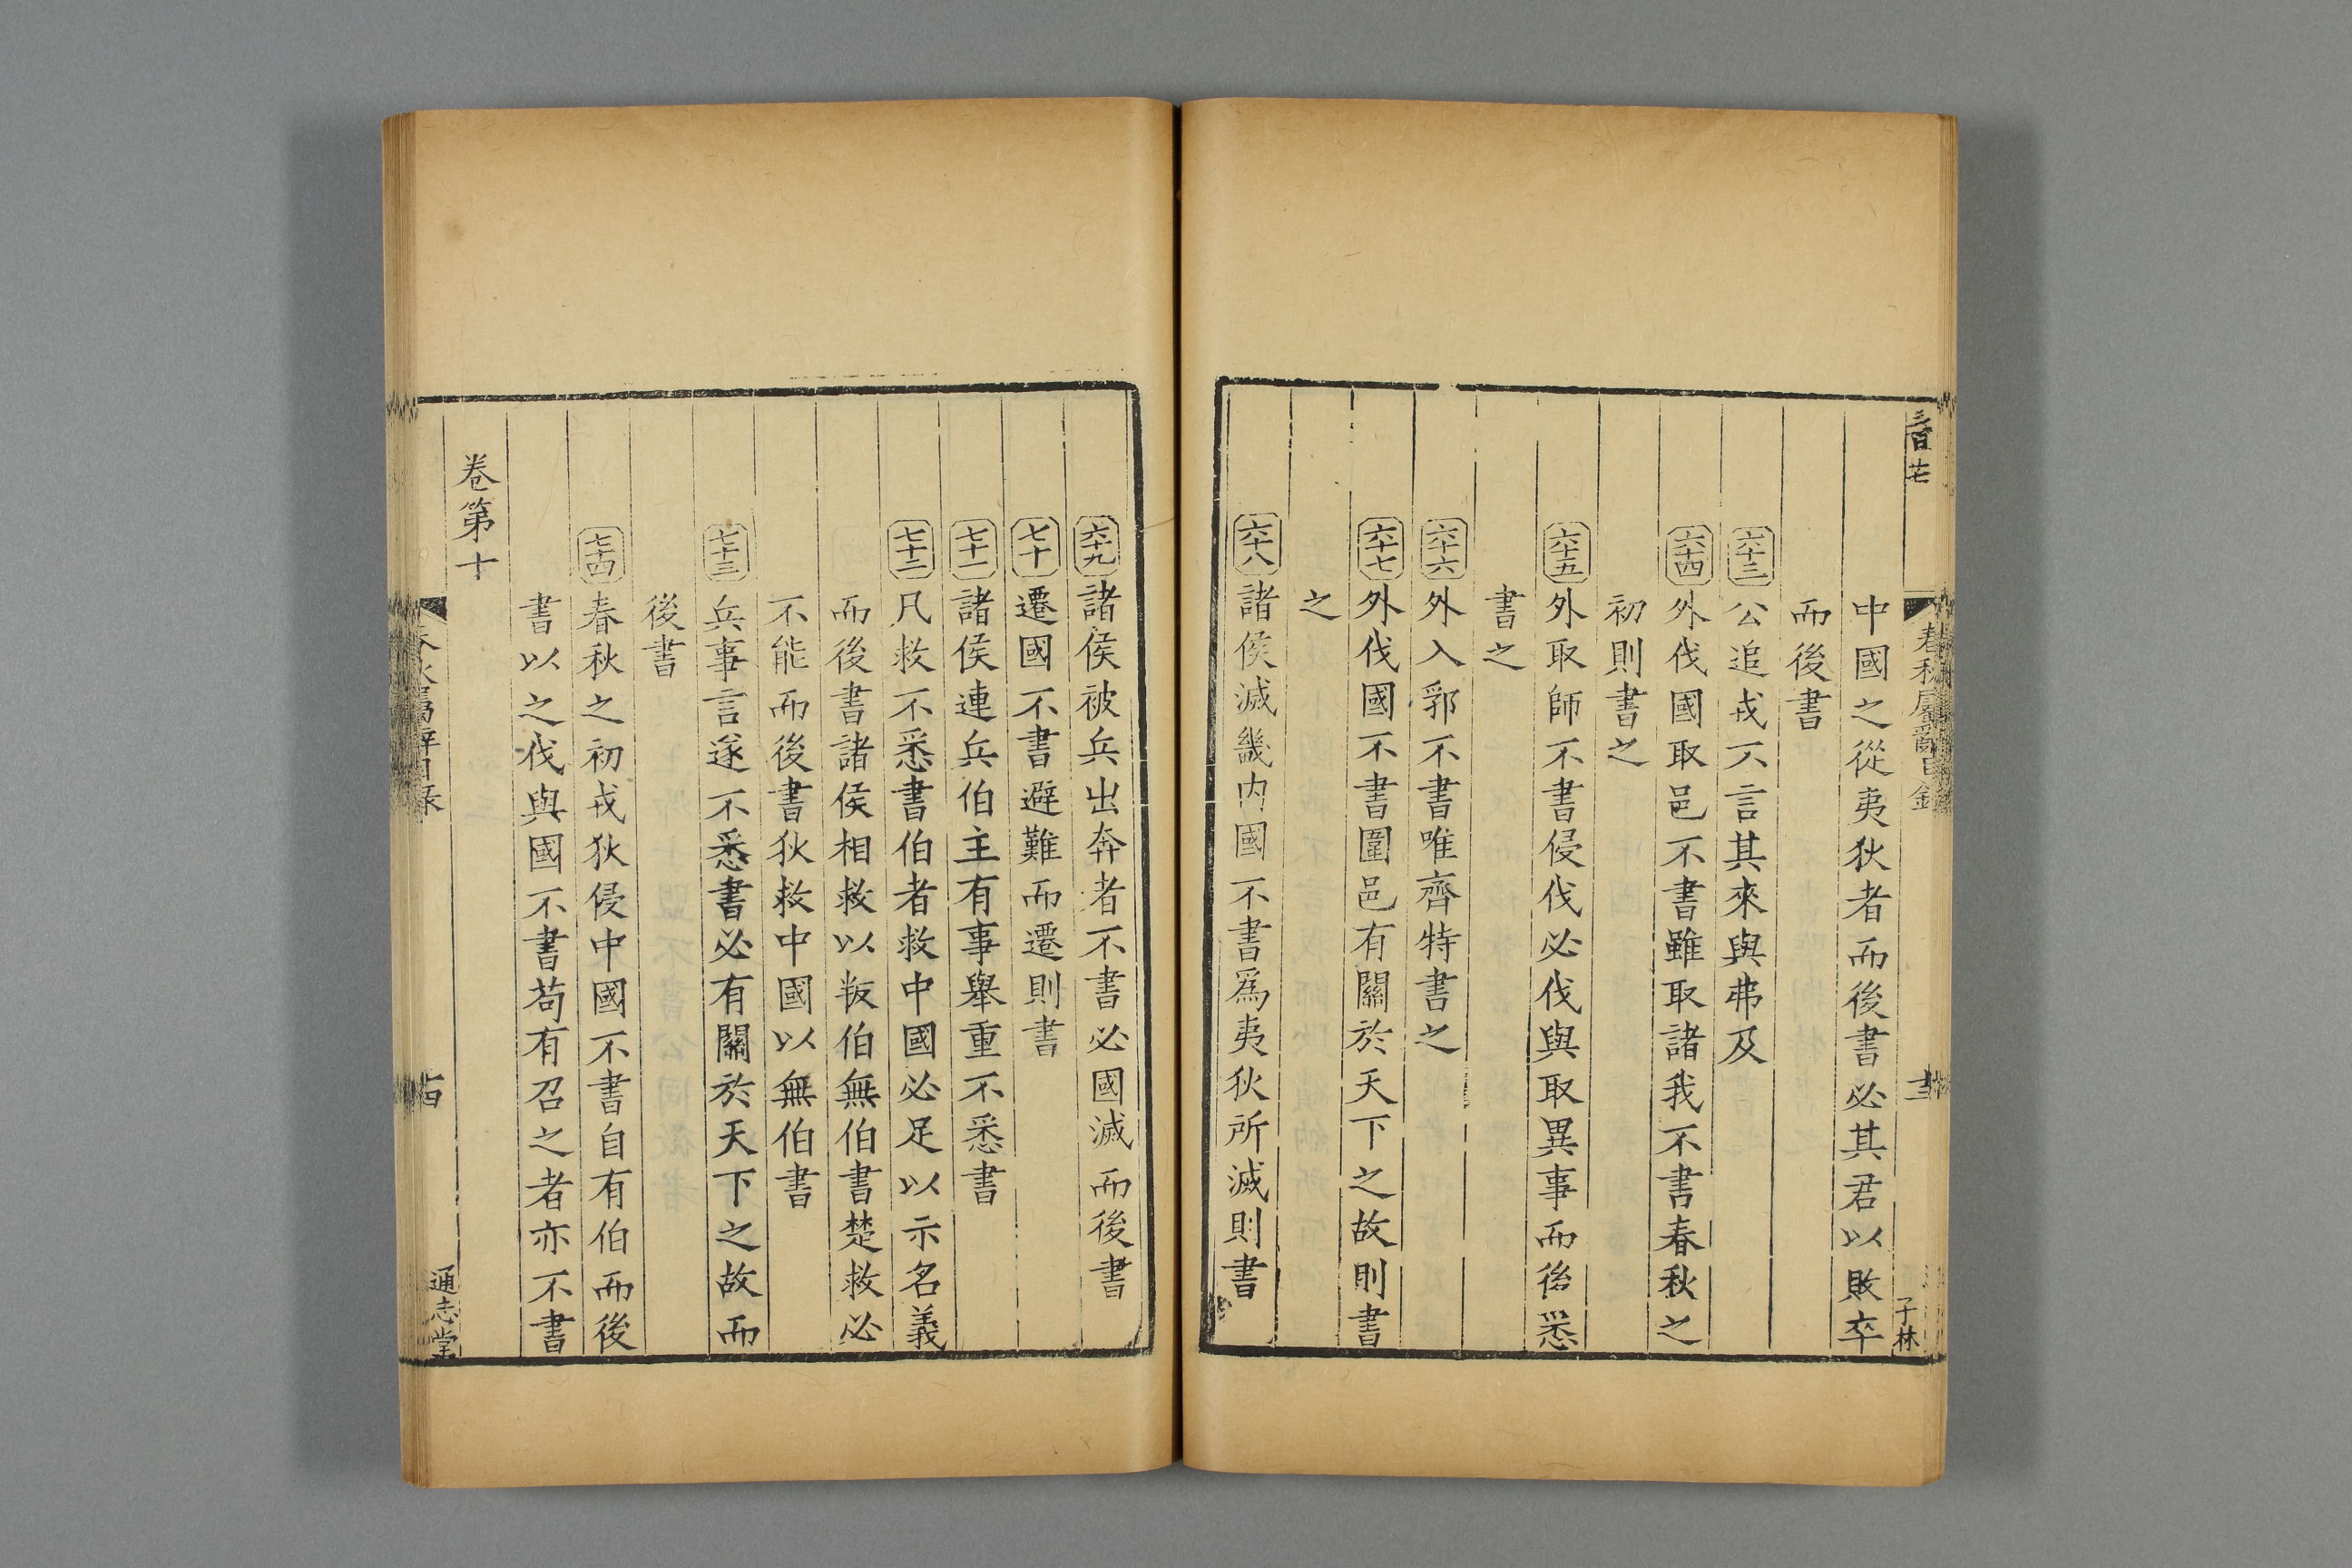 中國之從夷狄者而後書必其君以敗卒
而後書
六十三 公追戎不言其來與弗及
六十四 外伐國取邑不書雖取諸我不書春秋之
初則書之
六十五 外取師不書侵伐必伐與取異事而後悉
書之
六十六 外入郛不書唯齊特書之
六十七 外伐國不書圍邑有關於天下之故則書
之
六十八 諸侯滅畿内國不書爲夷狄所滅則書
六十九 諸侯被兵出奔者不書必國滅而後書
七十 遷國不書避難而遷則書
七十一 諸侯連兵伯主有事舉重不悉書
七十二 凡救不悉書伯者救中國必足以示名義
而後書諸侯相救以叛伯無伯書楚救必
不能而後書狄救中國以無伯書
七十三 兵事言遂不悉書必有關於天下之故而
後書
七十四 春秋之初戎狄侵中國不書自有伯而後
書以之伐與國不書茍有召之者亦不書
卷第十
春秋屬辭目錄
十四
通志堂
春秋屬辭目錄
十三
子林